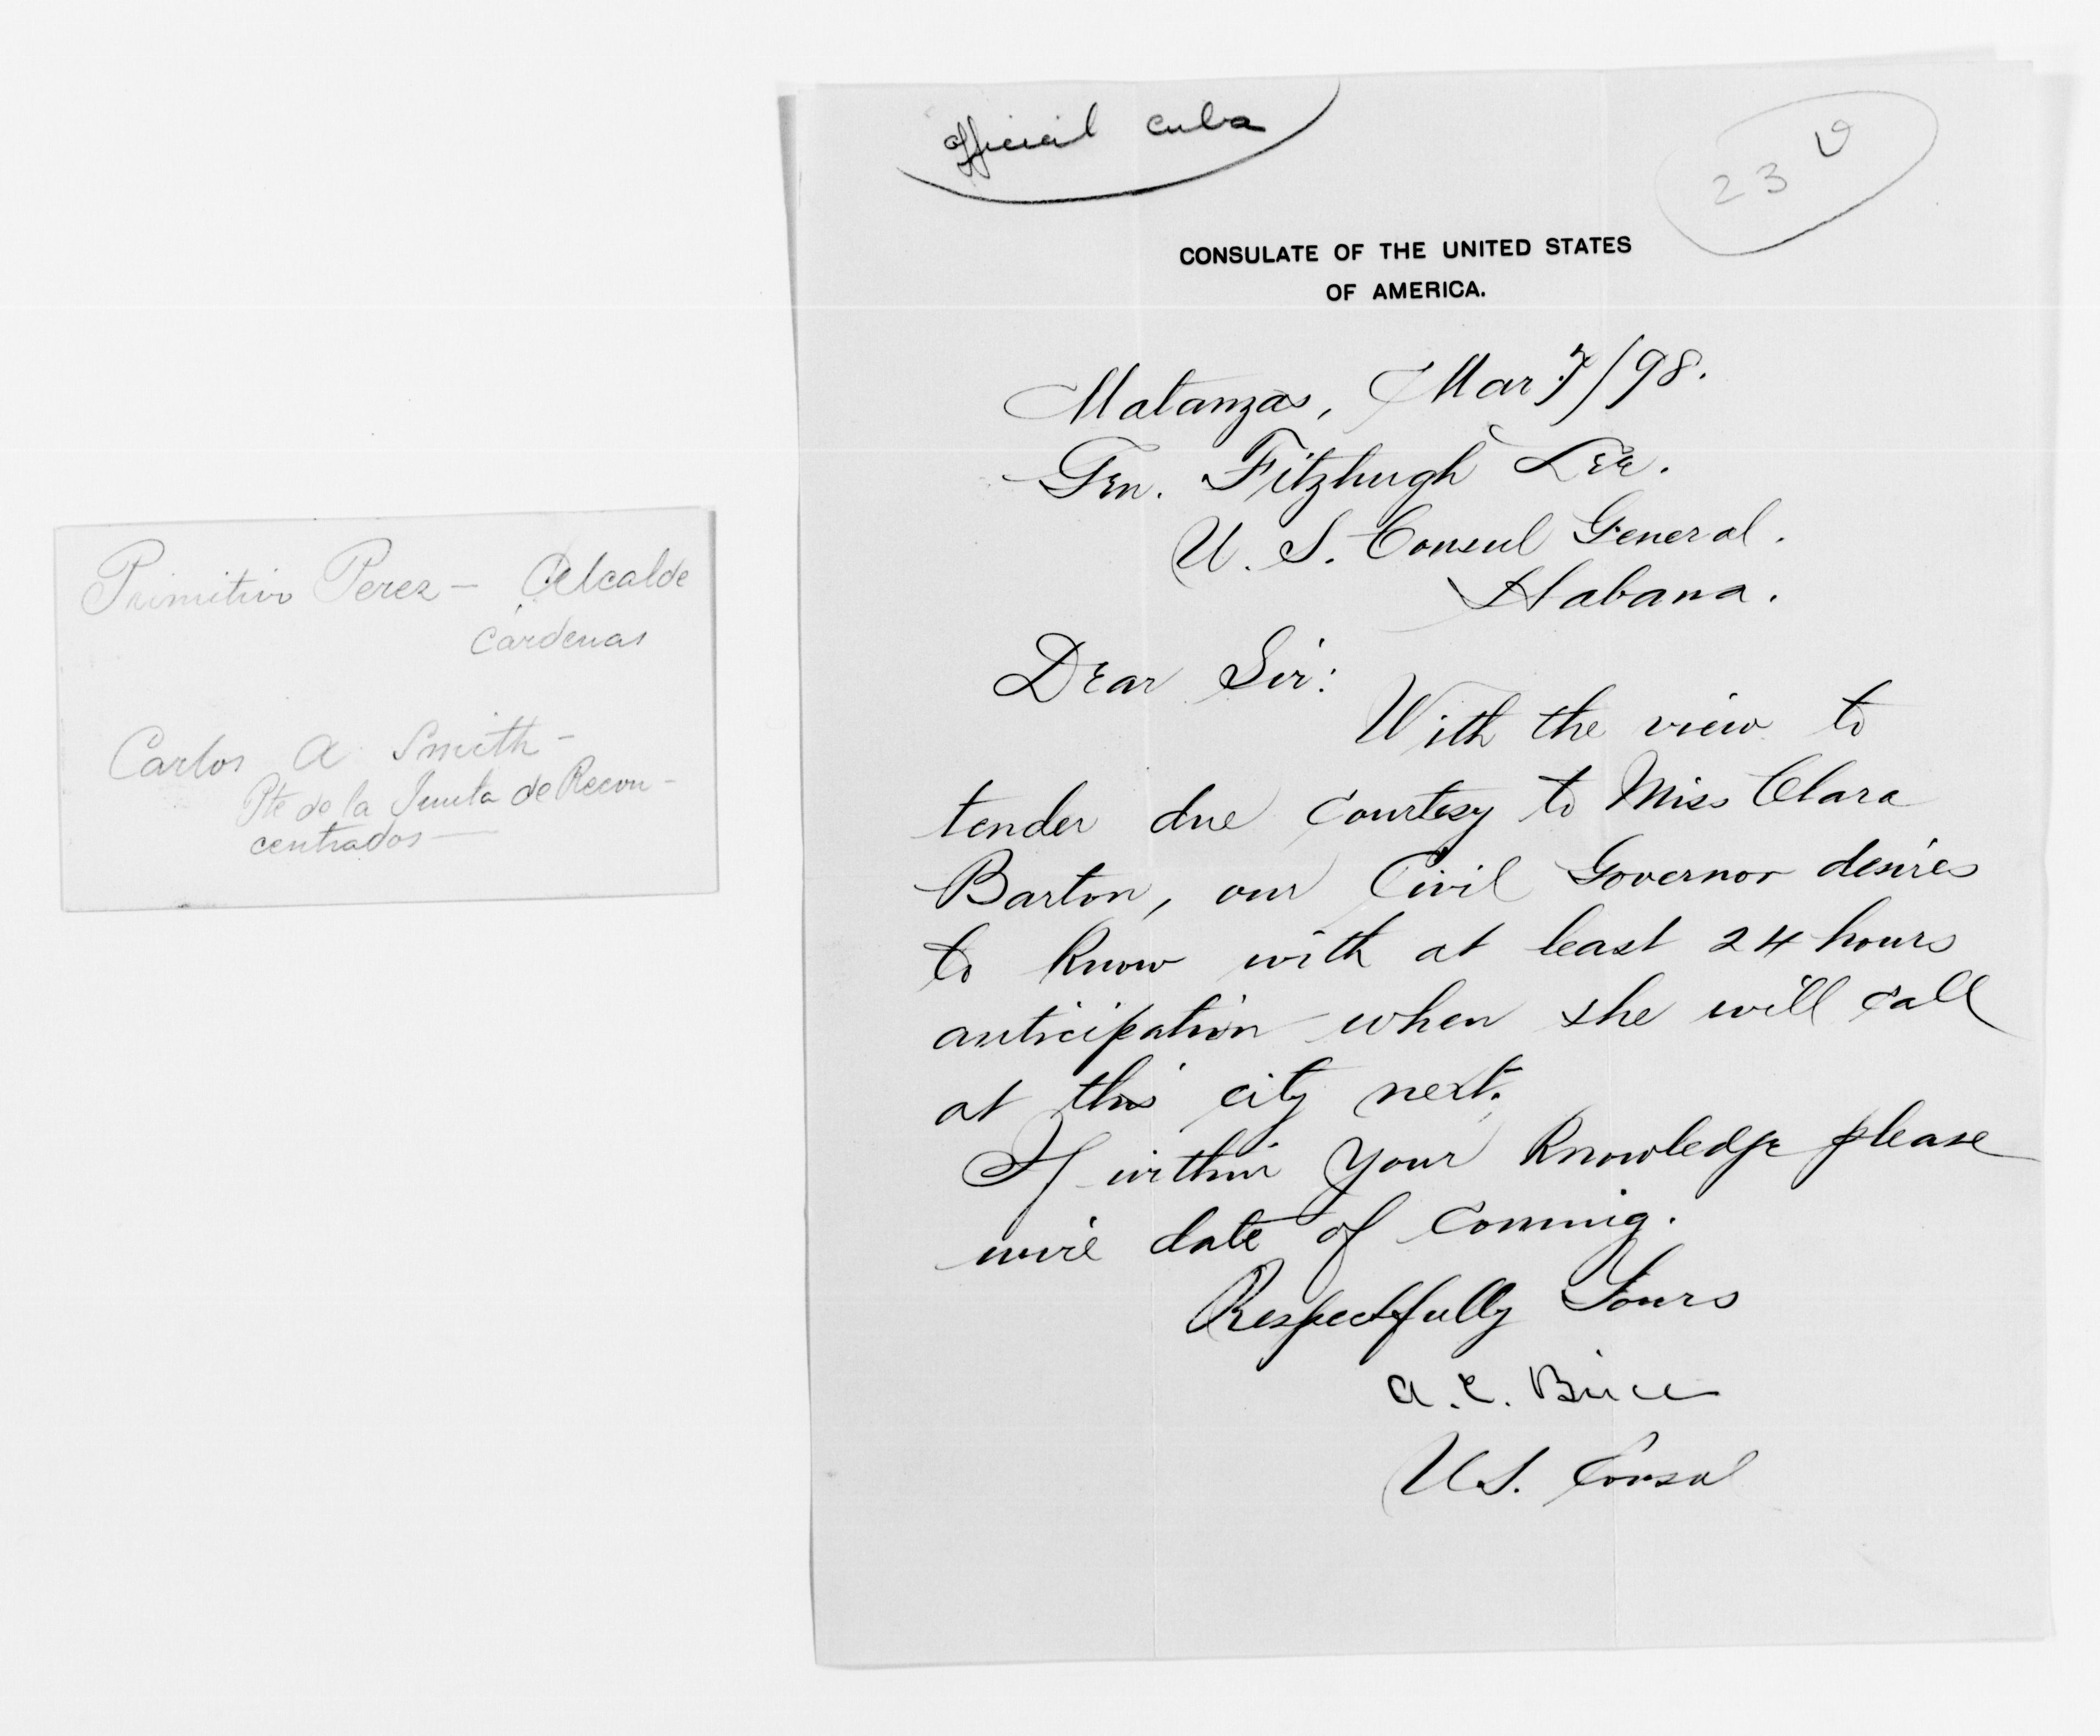 Primitivo Perez — Alcalde
Cárdenas
Carlos A Smith —
Pte de la Junta de Recon-
centrados —
Official Cuba
23
CONSULATE OF THE UNITED STATES
OF AMERICA.
Matanzas, Mar 7/98.
Gen. Fitzhugh Lee.
U. S. Consul General.
Habana.
Dear Sir:
With the view to
tender due courtesy to Miss Clara
Barton, our Civil Governor desires
to know with at least 24 hours
anticipation when she will call
at this city next.
If within your knowledge please
wire date of coming.
Respectfully Yours
A. C. Brice
U.S. Consul